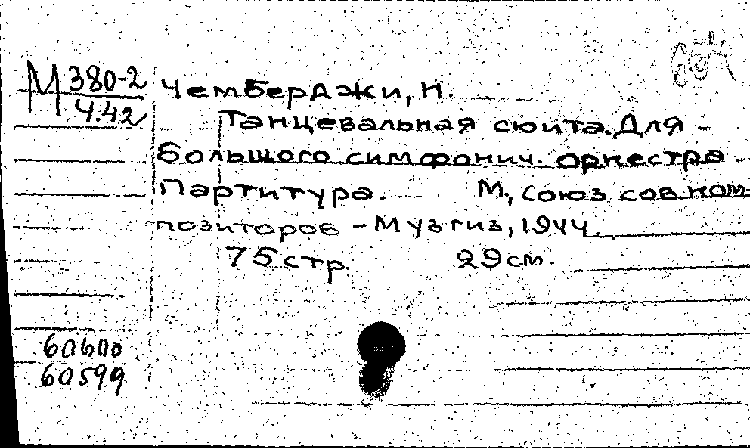 М 380-2
Ч.42
Чемберджи, Н.
Танцевальная сюита. Для
большого симфонич. оркестра
Партитура. М, Союз сов. ком-
позиторов - Музгиз, 1944.
75 стр. 29 см.
60600
60599